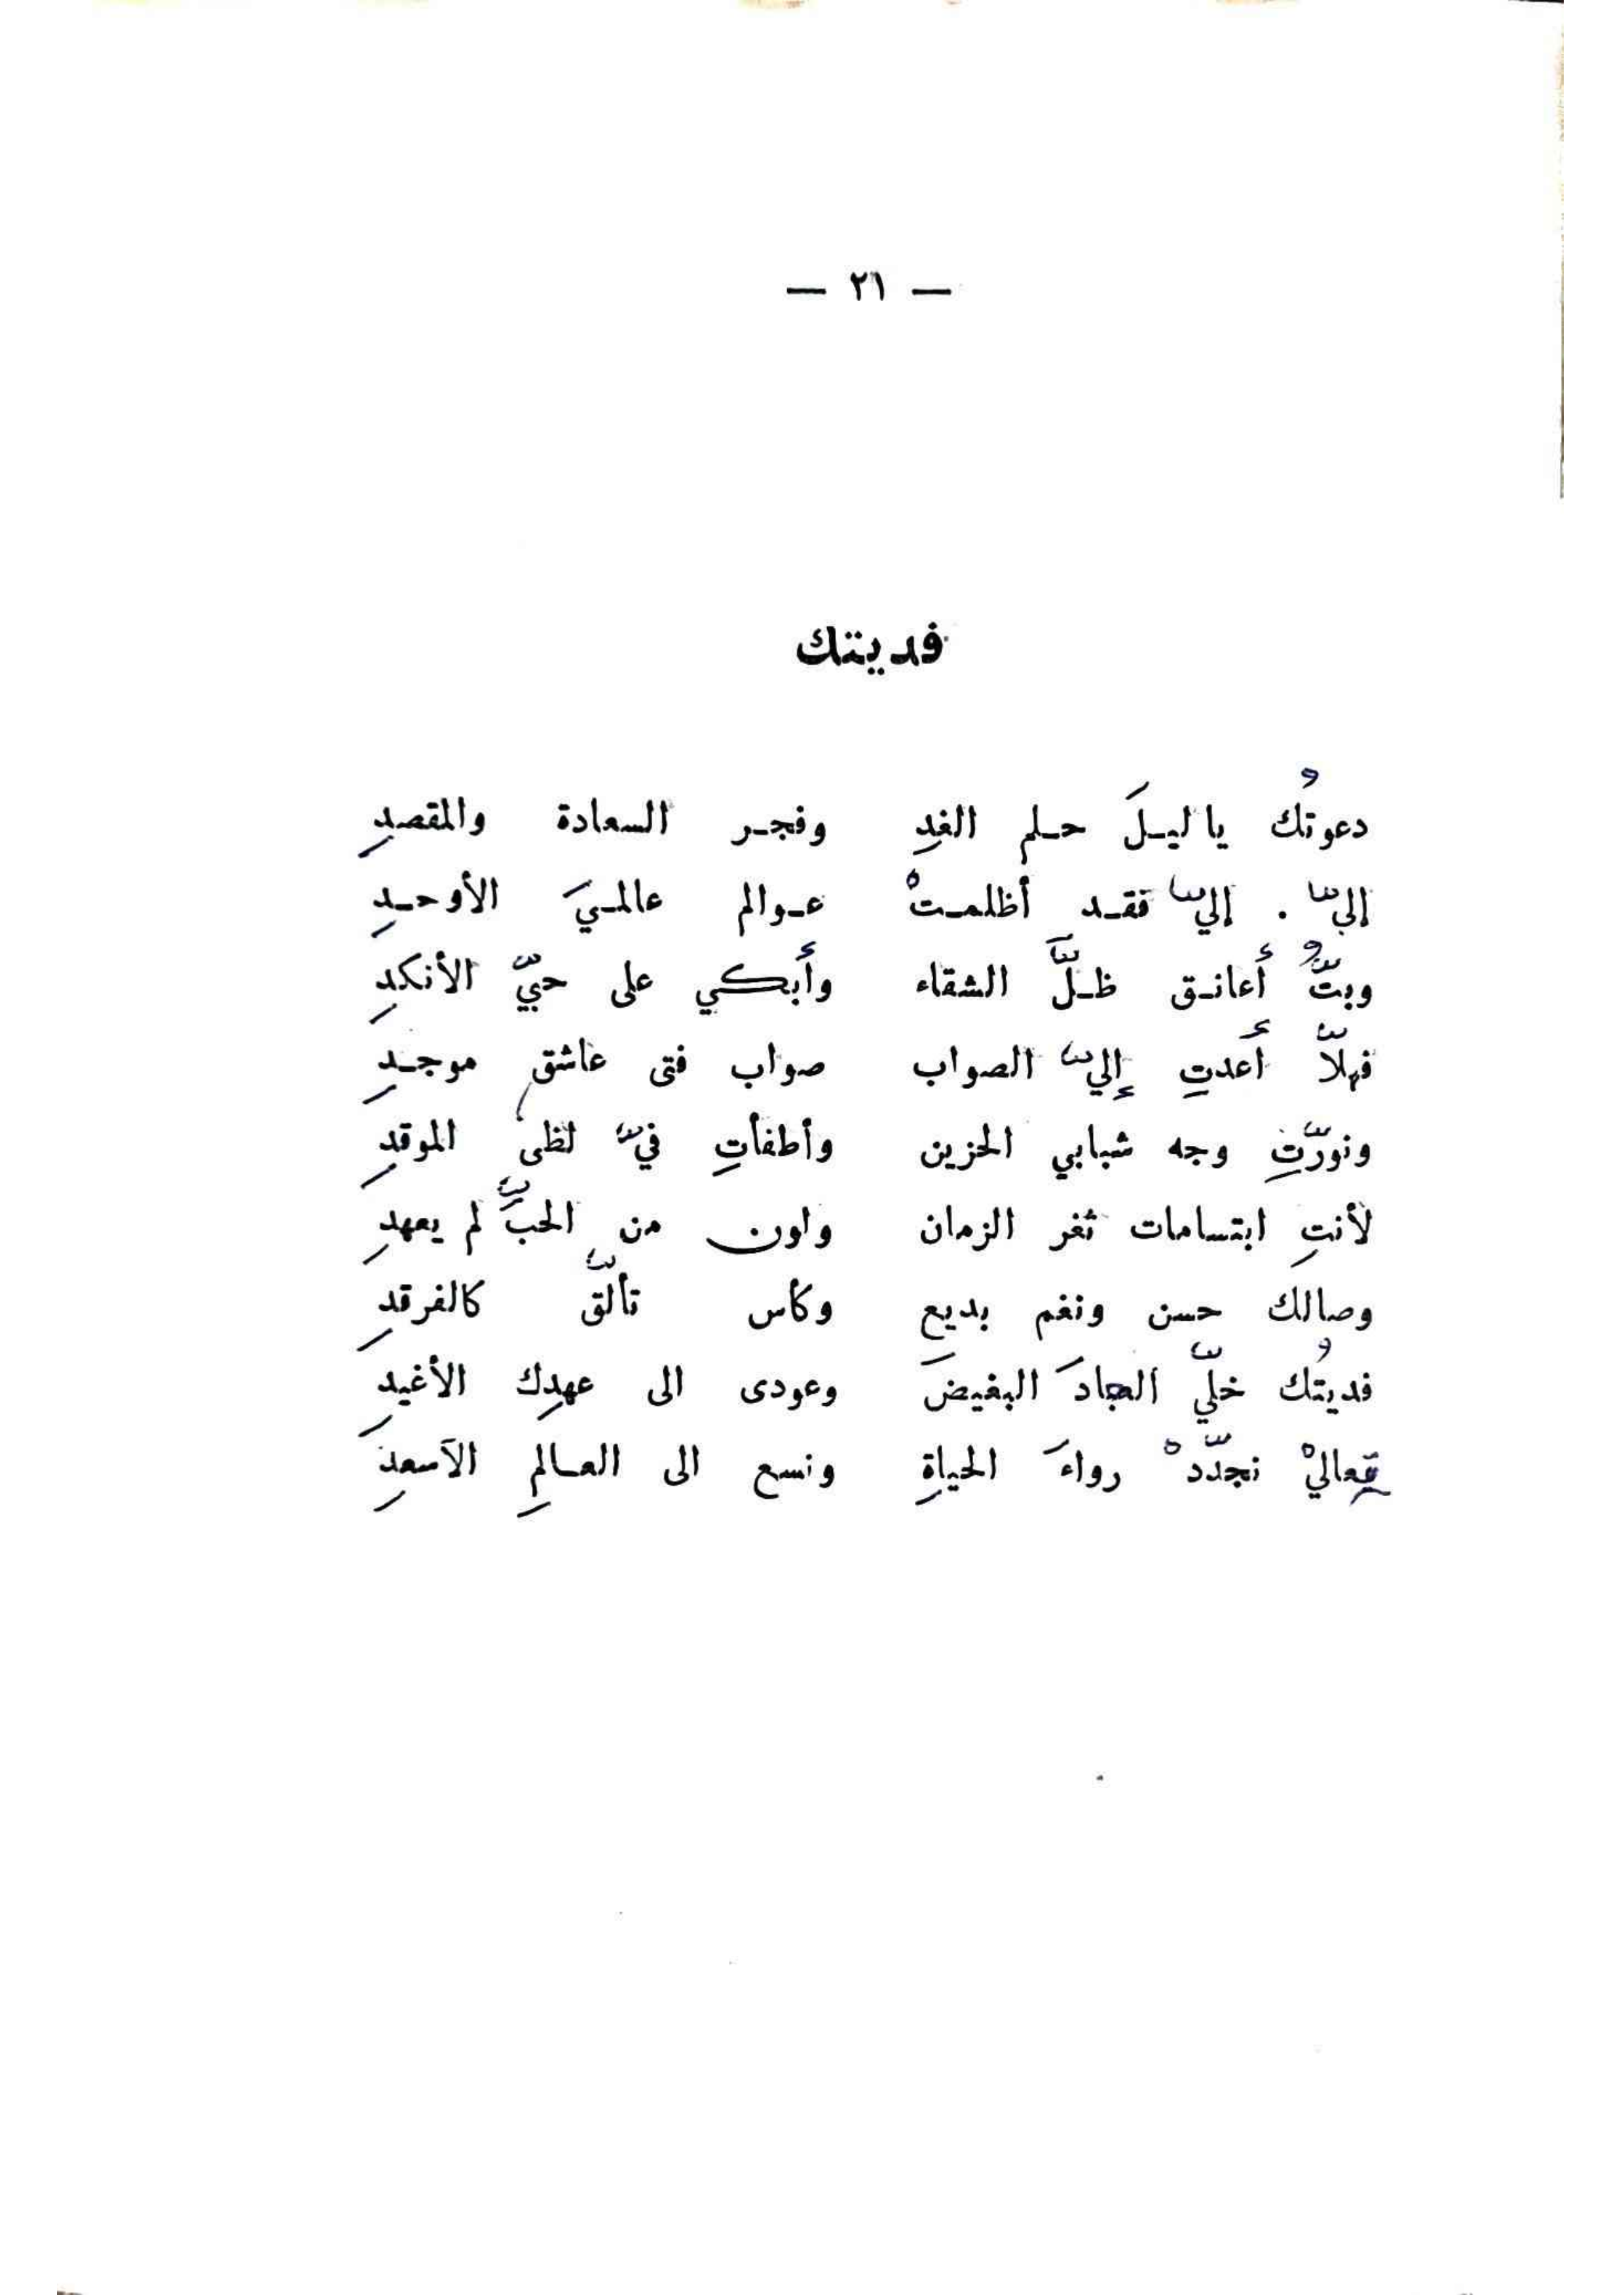 — ٢١ —
فديتك
دعوتُك يا ليلَ حلم الغدِ وفجر السعادة والمقصدِ
إليّ . إليّ فقد أظلمتْ عوالم عالميَ الأوحدِ
وبتُّ أعانق ظلَّ الشقاء وأبكي على حبيّ الأنكدِ
فهلاّ أعدتِ إليّ الصواب صواب فتى عاشقٍ موجدِ
ونورّتِ وجه شبابي الحزين وأطفأتِ فيّ لظى الموقدِ
لأنتِ ابتسامات ثغر الزمان ولون من الحبِّ لم يعهدِ
وصالك حسن ونغم بديع وكأس تألّق كالفرقدِ
فديتُك خليّ البغيضَ وعودى الى عهدِك الأغيدِ
تعاليْ نجدّدْ رواءَ الحياةِ ونسع الى العالمِ الأسعدِ